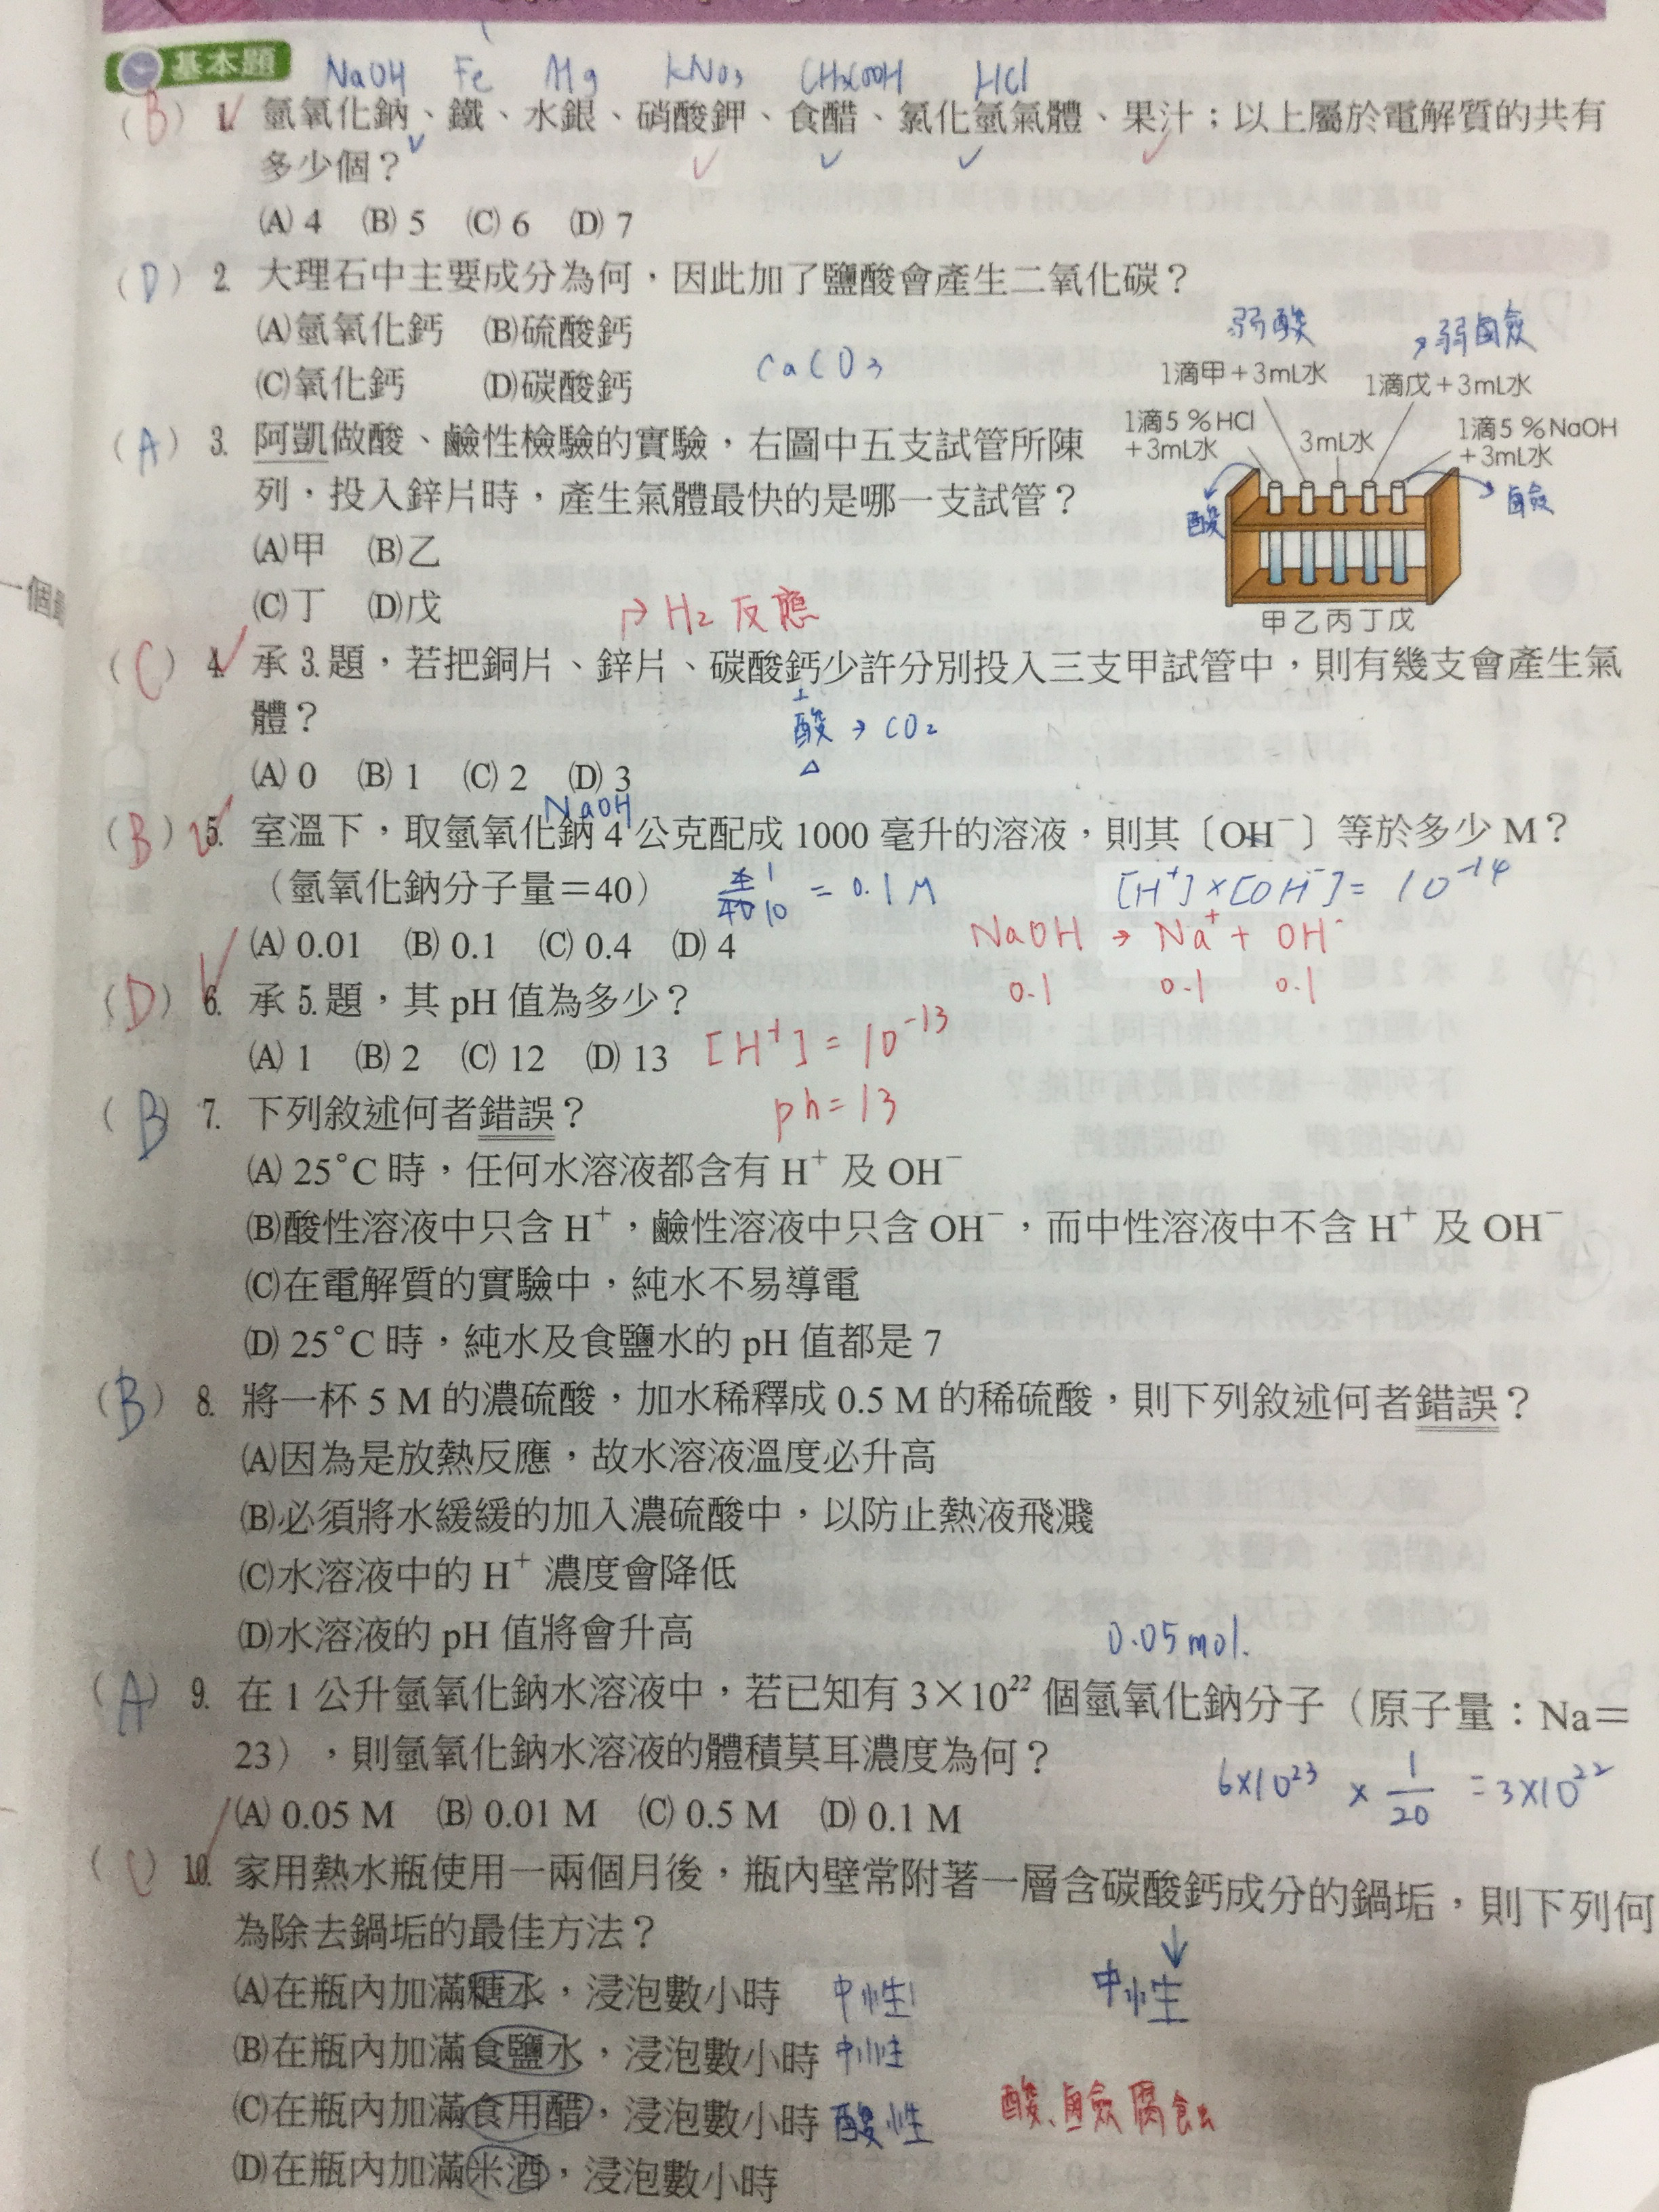 基本題
NaOH Fe Mg KNO3 CH3COOH HCl
(B) 1. 氫氧化鈉、鐵、水銀、硝酸鉀、食醋、氯化氫氣體、果汁；以上屬於電解質的共有
多少個？
(A) 4 (B) 5 (C) 6 (D) 7
(D) 2. 大理石中主要成分為何，因此加了鹽酸會產生二氧化碳？
(A)氫氧化鈣 (B)硫酸鈣
(C)氧化鈣 (D)碳酸鈣
CaCO3
弱酸
弱鹼
1滴甲＋3mL水
1滴戊＋3mL水
1滴5％HCl
＋3mL水
3mL水
1滴5％NaOH
＋3mL水
酸
鹼
甲乙丙丁戊
(A) 3. 阿凱做酸、鹼性檢驗的實驗，右圖中五支試管所陳
列，投入鋅片時，產生氣體最快的是哪一支試管？
(A)甲 (B)乙
(C)丁 (D)戊
→ H2 反應
(C) 4. 承 3. 題，若把銅片、鋅片、碳酸鈣少許分別投入三支甲試管中，則有幾支會產生氣
體？
＋
酸 → CO2
△
(A) 0 (B) 1 (C) 2 (D) 3
NaOH
(B) 5. 室溫下，取氫氧化鈉 4 公克配成 1000 毫升的溶液，則其〔OH⁻〕等於多少 M？
（氫氧化鈉分子量＝40）
4/40 1/10 = 0.1 M
[H⁺]×[OH⁻]= 10⁻¹⁴
NaOH → Na⁺ + OH⁻
0.1 0.1 0.1
(A) 0.01 (B) 0.1 (C) 0.4 (D) 4
(D) 6. 承 5. 題，其 pH 值為多少？
(A) 1 (B) 2 (C) 12 (D) 13
[H⁺] = 10⁻¹³
ph = 13
(B) 7. 下列敘述何者錯誤？
(A) 25°C 時，任何水溶液都含有 H⁺ 及 OH⁻
(B)酸性溶液中只含 H⁺，鹼性溶液中只含 OH⁻，而中性溶液中不含 H⁺ 及 OH⁻
(C)在電解質的實驗中，純水不易導電
(D) 25°C 時，純水及食鹽水的 pH 值都是 7
(B) 8. 將一杯 5 M 的濃硫酸，加水稀釋成 0.5 M 的稀硫酸，則下列敘述何者錯誤？
(A)因為是放熱反應，故水溶液溫度必升高
(B)必須將水緩緩的加入濃硫酸中，以防止熱液飛濺
(C)水溶液中的 H⁺ 濃度會降低
(D)水溶液的 pH 值將會升高
0.05 mol.
(A) 9. 在 1 公升氫氧化鈉水溶液中，若已知有 3×10²² 個氫氧化鈉分子（原子量：Na＝
23），則氫氧化鈉水溶液的體積莫耳濃度為何？
6×10²³ × 1/20 = 3×10²²
(A) 0.05 M (B) 0.01 M (C) 0.5 M (D) 0.1 M
(C) 10. 家用熱水瓶使用一兩個月後，瓶內壁常附著一層含碳酸鈣成分的鍋垢，則下列何
為除去鍋垢的最佳方法？
↓
中性
(A)在瓶內加滿糖水，浸泡數小時 中性
(B)在瓶內加滿食鹽水，浸泡數小時 中性
(C)在瓶內加滿食用醋，浸泡數小時 酸性
酸、鹼腐蝕
(D)在瓶內加滿米酒，浸泡數小時